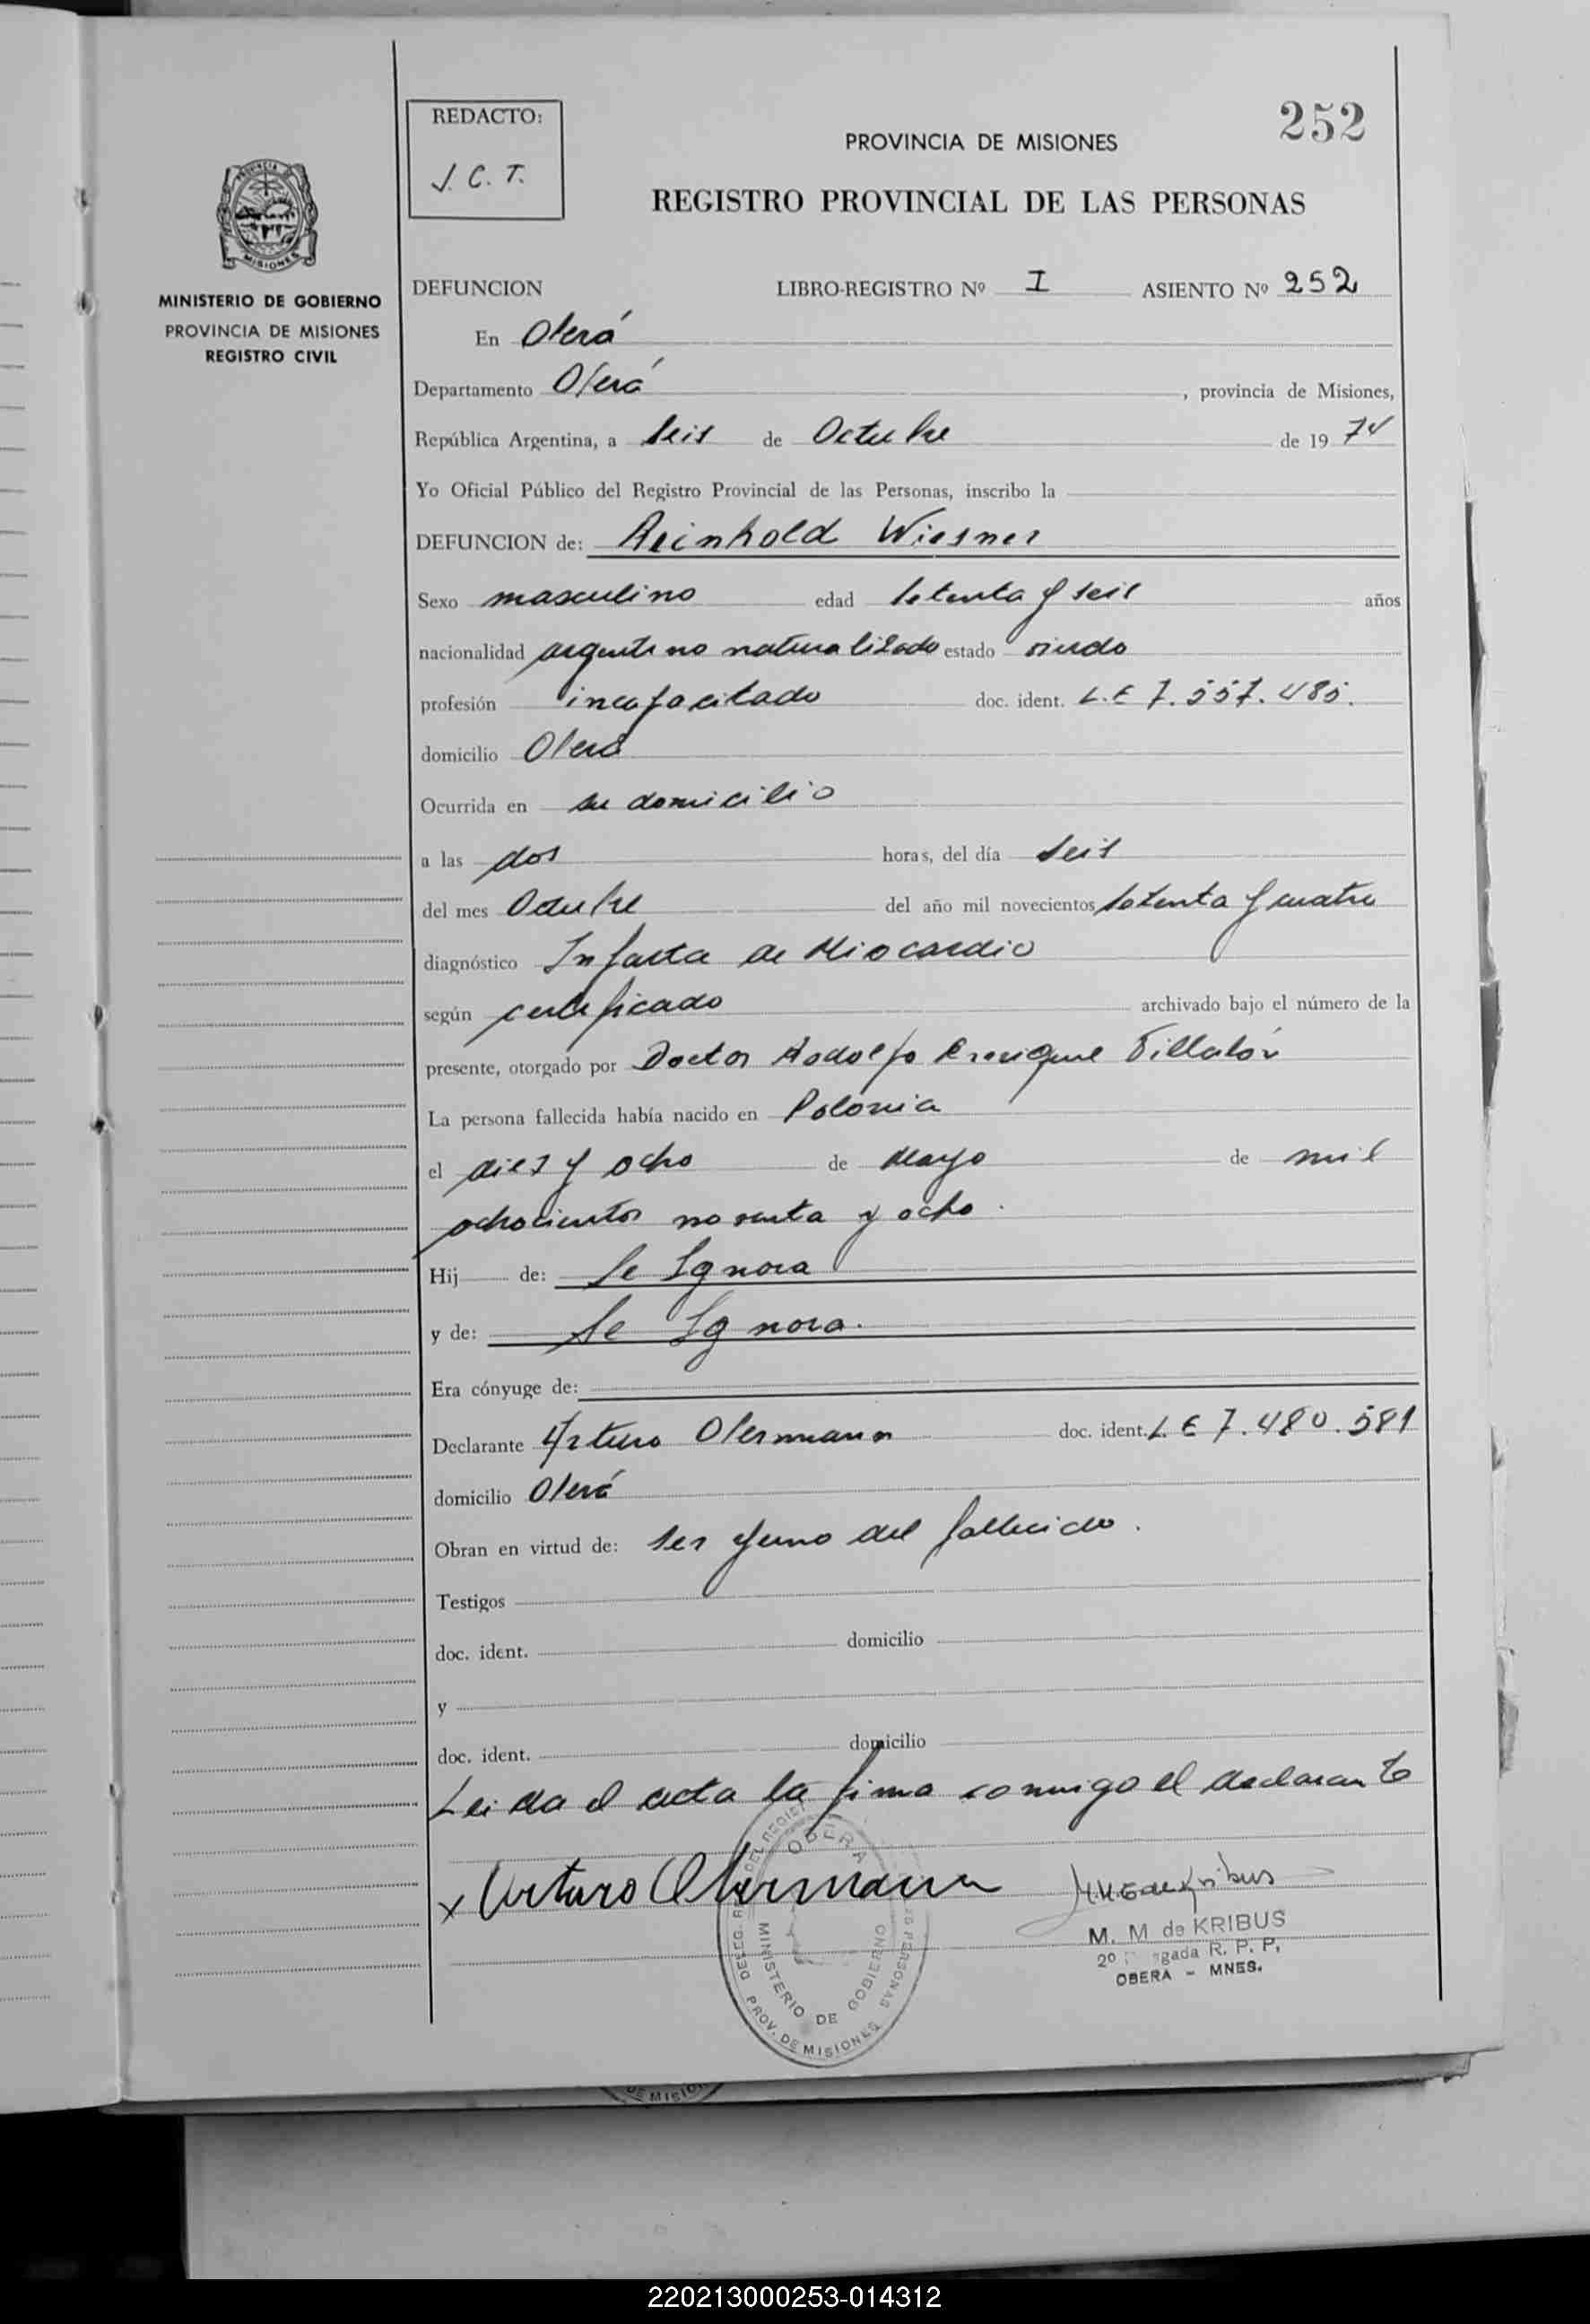 REDACTO:
J. C. T.
252
PROVINCIA DE MISIONES
REGISTRO PROVINCIAL DE LAS PERSONAS
PROVINCIA DE
MISIONES
MINISTERIO DE GOBIERNO
PROVINCIA DE MISIONES
REGISTRO CIVIL
DEFUNCION LIBRO-REGISTRO Nº I ASIENTO Nº 252
En Oberá
Departamento Oberá, provincia de Misiones,
República Argentina, a seis de Octubre de 1974
Yo Oficial Público del Registro Provincial de las Personas, inscribo la
DEFUNCION de: Reinhold Wiesner
Sexo masculino edad setenta y seis años
nacionalidad argentino naturalizado estado viudo
profesión incapacitado doc. ident. L.E 7.557.485.
domicilio Oberá
Ocurrida en su domicilio
a las dos horas, del día seis
del mes Octubre del año mil novecientos setenta y cuatro
diagnóstico Infarto de Miocardio
según certificado archivado bajo el número de la
presente, otorgado por Doctor Rodolfo Enrique Villalón
La persona fallecida había nacido en Polonia
el diez y ocho de Mayo de mil
ochocientos noventa y ocho.
Hij de: Se Ignora
y de: Se Ignora.
Era cónyuge de:
Declarante Arturo Obermann doc. ident. L.E 7.480.581
domicilio Oberá
Obran en virtud de: ser yerno del fallecido.
Testigos
doc. ident. domicilio
y
doc. ident. domicilio
Leida el acta la firma conmigo el declarante
x Arturo Obermann
OBERA
MINISTERIO DE GOBIERNO
PROV. DE MISIONES
M. M de KRIBUS
R. P. P.
OBERA - MNES.
DE MISION
220213000253-014312